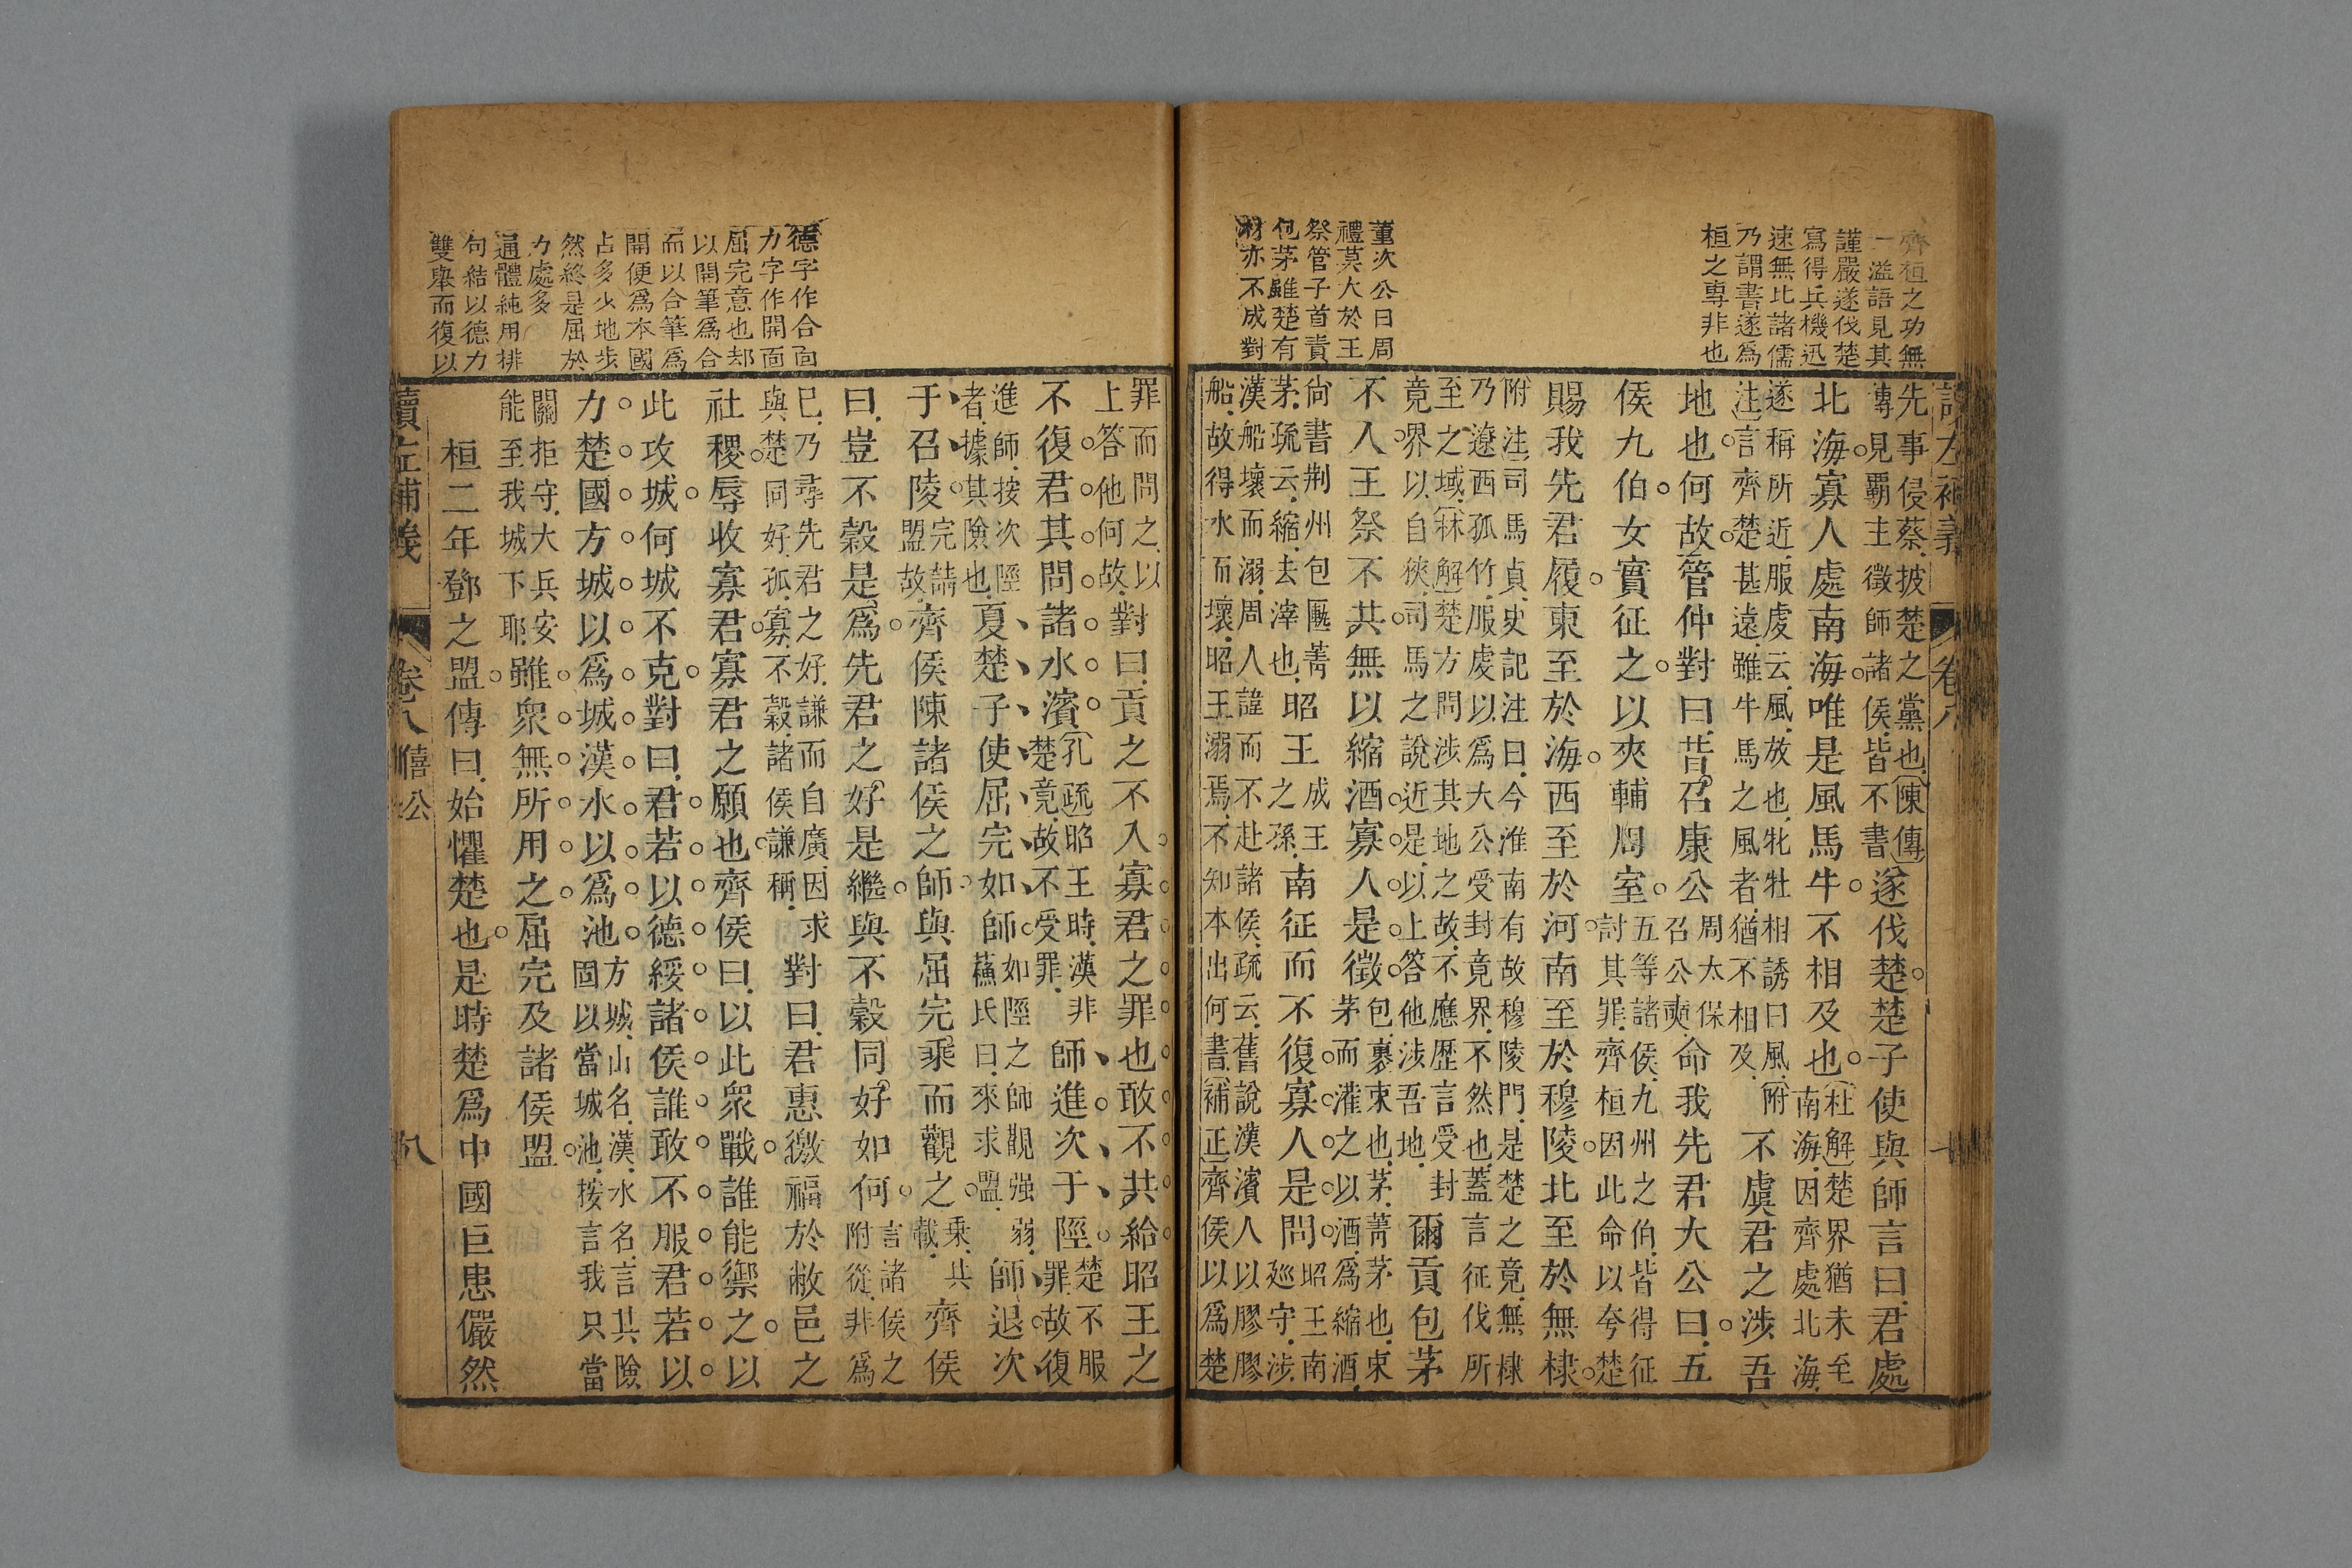 齊桓之功無
一溢語見其
謹嚴遂伐楚
寫得兵機迅
速無比諸儒
乃謂書遂爲
桓之專非也
董次公曰周
禮莫大於王
祭管子首責
包茅雖楚有
材亦不成對
先事侵蔡披楚之黨也陳傳
傳見覇主徵師諸侯皆不書
遂伐楚楚子使與師言曰君處
北海寡人處南海唯是風馬牛不相及也
杜解楚界猶未至
南海因齊處北海
遂稱所近服虔云風放也牝牡相誘曰風附
注言齊楚甚遠雖牛馬之風者猶不相及
不虞君之涉吾
地也何故管仲對曰昔召康公
周太保
召公奭
命我先君大公曰五
侯九伯女實征之以夾輔周室
五等諸侯九州之伯皆得征
討其罪齊桓因此命以夸楚
賜我先君履東至於海西至於河南至於穆陵北至於無棣
附注司馬貞史記注曰今淮南有故穆陵門是楚之竟無棣
乃遼西孤竹服虔以爲大公受封竟界不然也蓋言征伐所
至之域林解楚方問涉其地之故不應歷言受封
竟界以自狹司馬之說近是以上答他涉吾地
爾貢包茅
不入王祭不共無以縮酒寡人是徵
包裹束也茅菁茅也束
茅而灌之以酒爲縮酒
尙書荆州包匭菁
茅疏云縮去滓也
昭王
成王
之孫
南征而不復寡人是問
昭王南
廵守涉
漢船壞而溺周人諱而不赴諸侯疏云舊說漢濱人以膠膠
船故得水而壞昭王溺焉不知本出何書補正齊侯以爲楚
讀左補義 卷八 十
德字作合面
力字作開面
屈完意也却
以開筆爲合
而以合筆爲
開便爲本國
占多少地步
然終是屈於
力處多
通體純用排
句結以德力
雙舉而復以
罪而問之以
上答他何故
對曰貢之不入寡君之罪也敢不共給昭王之
不復君其問諸水濱
孔疏昭王時漢非
楚竟故不受罪
師進次于陘
楚不服
罪故復
進師按次陘
者據其險也
夏楚子使屈完如師
如陘之師觀强弱
蘓氏曰來求盟
師退次
于召陵
完請
盟故
齊侯陳諸侯之師與屈完乘而觀之
乗共
載
齊侯
曰豈不穀是爲先君之好是繼與不穀同好如何
言諸侯之
附從非爲
已乃尋先君之好謙而自廣因求
與楚同好孤寡不穀諸侯謙稱
對曰君惠徼福於敝邑之
社稷辱收寡君寡君之願也齊侯曰以此衆戰誰能禦之以
此攻城何城不克對曰君若以德綏諸侯誰敢不服君若以
力楚國方城以爲城漢水以爲池
方城山名漢水名言其險
固以當城池按言我只當
關拒守大兵安
能至我城下耶
雖衆無所用之屈完及諸侯盟
桓二年鄧之盟傳曰始懼楚也是時楚爲中國巨患儼然
讀左補義 卷八 僖公 八